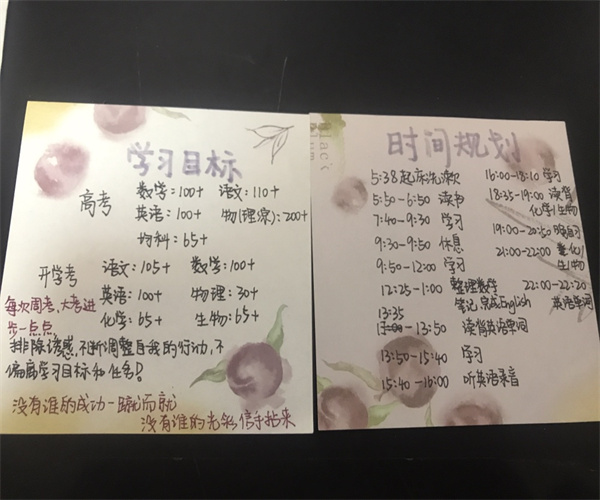 学习目标
高考 数学：100+ 语文：110+
英语：100+ 物(理综)：200+
均科：65+
开学考 语文：105+ 数学：100+
英语：100+ 物理：30+
化学：65+ 生物：65+
每次周考、大考进
步一点点
排除诱惑，不断调整自我的行动，不
偏离学习目标和任务！
没有谁的成功一蹴而就
没有谁的光彩信手拈来
Black
Plum
时间规划
5:38 起床洗漱
5:50-6:50 读书
7:40-9:30 学习
9:30-9:50 休息
9:50-12:00 学习
12:25-1:00 整理数学
笔记 完成English
13:35
-13:50 读背英语单词
13:50-15:40 学习
15:40-16:00 听英语录音
16:00-18:10 学习
18:35-19:00 读背
化学/生物
19:00-20:50 晚自习
21:00-22:00 化/
生/物
22:00-22:20
英语单词